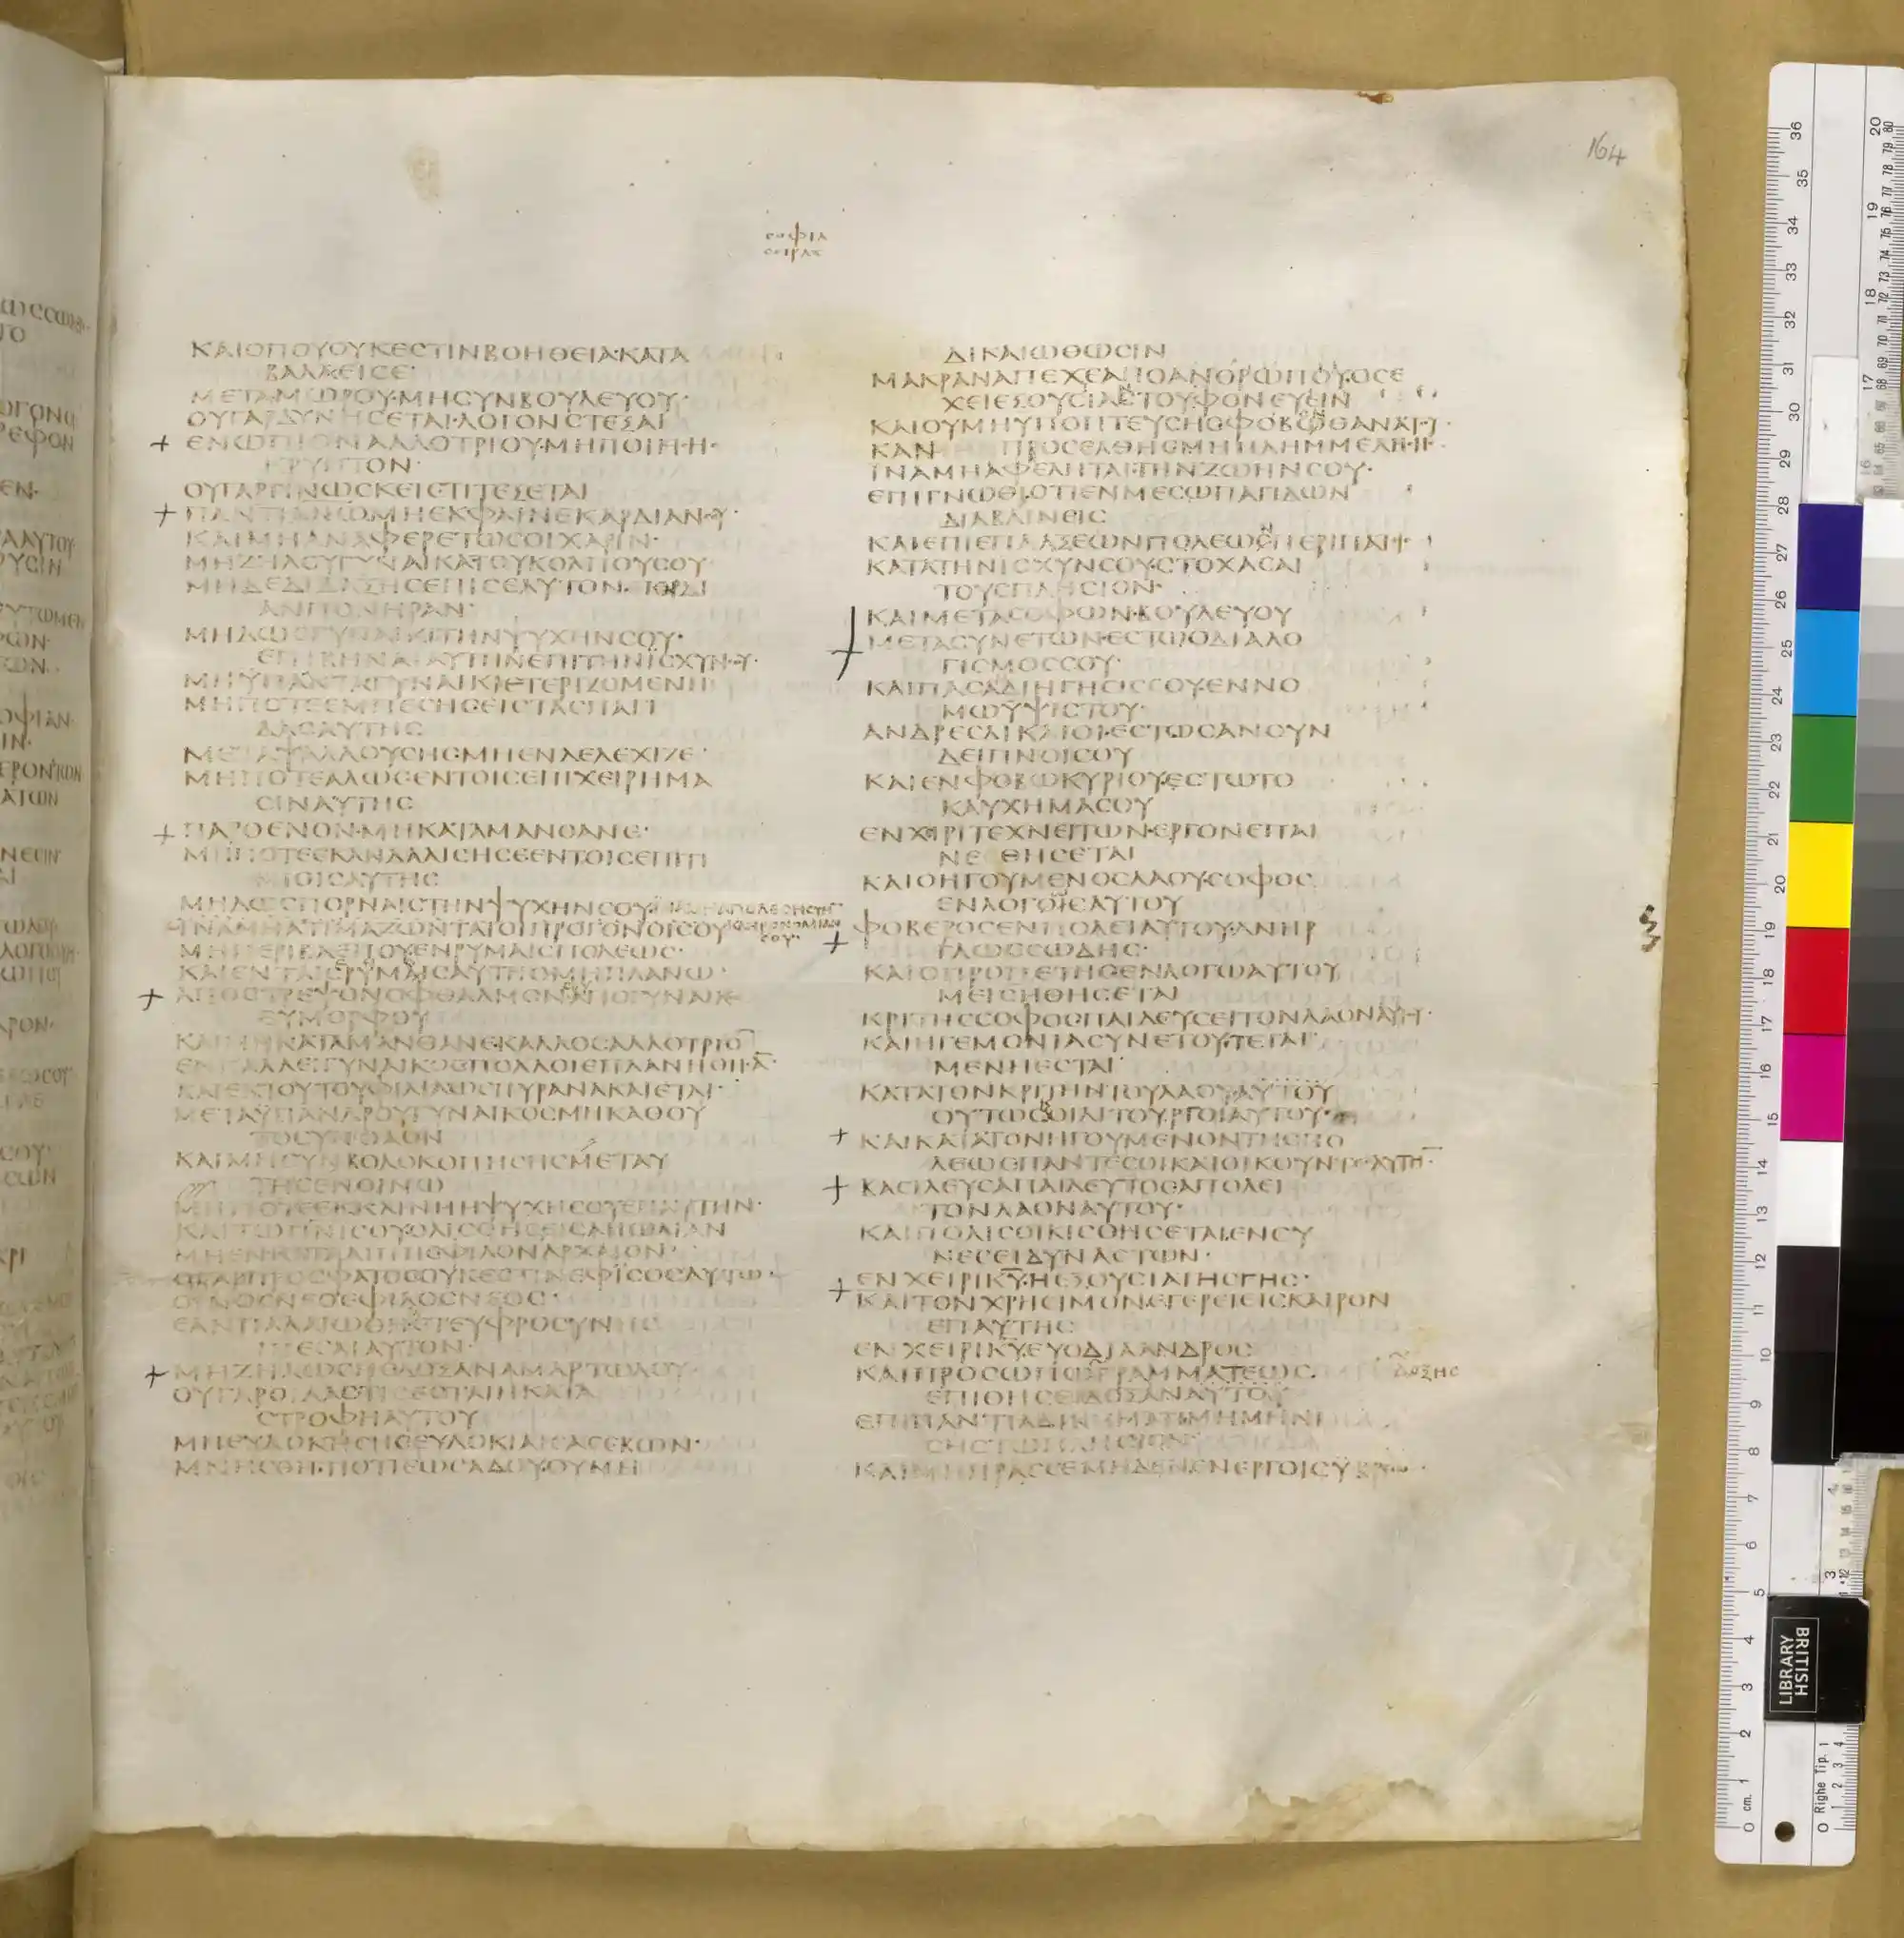 164
σοφια
σειραχ
ΚΑΙΟΠΟΥΟΥΚΕϹΤΙΝΒΟΗΘΕΙΑ·ΚΑΤΑ
ΒΑΛΕΙϹΕ·
ΜΕΤΑΜΩΡΟΥ·ΜΗϹΥΝΒΟΥΛΕΥΟΥ·
ΟΥΓΑΡΔΥΝΗϹΕΤΑΙ·ΛΟΓΟΝϹΤΕΞΑΙ
ΕΝΩΠΙΟΝΑΛΛΟΤΡΙΟΥ·ΜΗΠΟΙΗϹΗϹ
ΚΡΥΠΤΟΝ·
ΟΥΓΑΡΓΙΝΩϹΚΕΙϹΤΙΤΕΞΕΤΑΙ
ΠΑΝΤΙΑΝΩ·ΜΗΕΚΦΑΙΝΕΚΑΡΔΙΑΝϹΟΥ·
ΚΑΙΜΗΑΝΑΦΕΡΕΤΩϹΟΙΧΑΡΙΝ·
ΜΗΖΗΛΟΥΓΥΝΑΙΚΑΤΟΥΚΟΛΠΟΥϹΟΥ
ΜΗΔΕΔΙΔΑΞΗϹΕΠΙϹΕΑΥΤΟΝ·
ΑΝΠΟΝΗΡΑΝ·
ΜΗΔΩϹΓΥΝΑΙΚΙΤΗΝΨΥΧΗΝϹΟΥ·
ΕΠΙΒΗΝΑΙΑΥΤΗΝΕΠΙΤΗΝΪϹΧΥΝϹΟΥ·
ΜΗΫΠΑΝΤΑΓΥΝΑΙΚΙΕΤΕΡΙΖΟΜΕΝΗ
ΜΗΠΟΤΕΕΜΠΕϹΗϹΕΙϹΤΑϹΠΑΓΙ
ΔΑϹΑΥΤΗϹ
ΜΕΤΑΨΑΛΛΟΥϹΗϹ·ΜΗΕΝΔΕΛΕΧΙΖΕ·
ΜΗΠΟΤΕΑΛΩϹΕΝΤΟΙϹΕΠΙΧΕΙΡΗΜΑ
ϹΙΝΑΥΤΗϹ
ΠΑΡΘΕΝΟΝ·ΜΗΚΑΤΑΜΑΝΘΑΝΕ·
ΜΗΠΟΤΕϹΚΑΝΔΑΛΙϹΗϹϹΕΕΝΤΟΙϹΕΠΙΤΙ
ΜΙΟΙϹΑΥΤΗϹ
ΜΗΔΩϹΠΟΡΝΑΙϹΤΗΝΨΥΧΗΝϹΟΥ
ΙΝΑΜΗΑΤΙΜΑΖΩΝΤΑΙΟΙΠΡΟΓΟΝΟΙϹΟΥ
ΜΗΠΕΡΙΒΛΕΠΟΥΕΝΡΥΜΑΙϹΠΟΛΕΩϹ·
ΚΑΙΕΝΤΑΙϹΡΥΜΑΙϹΑΥΤΗϹΜΗΠΛΑΝΩ·
ΑΠΟϹΤΡΕΨΟΝΟΦΘΑΛΜΟΝΑΠΟΓΥΝΑΙΚΟϹ
ΕΥΜΟΡΦΟΥ
ΚΑΙΜΗΚΑΤΑΜΑΝΘΑΝΕ·ΚΑΛΛΟϹΑΛΛΟΤΡΙΟ
ΕΝΚΑΛΛΕΙΓΥΝΑΙΚΟϹΠΟΛΛΟΙΕΠΛΑΝΗΘΗϹΑ
ΚΑΙΕΚΤΟΥΤΟΥΦΙΛΙΑΩϹΠΥΡΑΝΑΚΑΙΕΤΑΙ·
ΜΕΤΑΫΠΑΝΔΡΟΥΓΥΝΑΙΚΟϹΜΗΚΑΘΟΥ
ΤΟϹΥΝΟΛΟΝ
ΚΑΙΜΗϹΥΝΒΟΛΟΚΟΠΗϹΗϹΜΕΤΑΥ
ΤΗϹΕΝΟΙΝΩ
ΜΗΠΟΤΕΕΚΚΛΙΝΗΗΨΥΧΗϹΟΥΕΠΑΥΤΗΝ·
ΚΑΙΤΩΠΝΙϹΟΥΟΛΙϹΘΗϹΕΙϹΑΠΩΛΙΑΝ
ΜΗΕΝΚΑΤΑΛΙΠΗϹΦΙΛΟΝΑΡΧΑΙΟΝ·
ΟΓΑΡΠΡΟϹΦΑΤΟϹΟΥΚΕϹΤΙΝΕΦΙϹΟϹΑΥΤΩ·
ΟΙΝΟϹΝΕΟϹΦΙΛΟϹΝΕΟϹ·
ΕΑΝΠΑΛΑΙΩΘΗΜΕΤΕΥΦΡΟϹΥΝΗϹ
ΠΙΕϹΑΙΑΥΤΟΝ·
ΜΗΖΗΛΩϹΗϹΔΟΞΑΝΑΜΑΡΤΩΛΟΥ·
ΟΥΓΑΡΟΙΔΑϹΤΙϹΕϹΤΑΙΗΚΑΤΑ
ϹΤΡΟΦΗΑΥΤΟΥ
ΜΗΕΥΔΟΚΗϹΗϹΕΥΔΟΚΙΑΙϹΑϹΕΒΩΝ·
ΜΝΗϹΘΗΤΙΟΤΙΕΩϹΑΔΟΥ·ΟΥΜΗ
ΔΙΚΑΙΩΘΩϹΙΝ
ΜΑΚΡΑΝΑΠΕΧΕΑΠΟΑΝΘΡΩΠΟΥ·ΟϹΕ
ΧΕΙΕΞΟΥϹΙΑΝΤΟΥΦΟΝΕΥΕΙΝ
ΚΑΙΟΥΜΗΥΠΟΠΤΕΥϹΗϹΦΟΒΟΝΘΑΝΑΤΟΥ·
ΚΑΝΠΡΟϹΕΛΘΗϹΜΗΠΛΗΜΜΕΛΗϹΗϹ·
ΪΝΑΜΗΑΦΕΛΗΤΑΙΤΗΝΖΩΗΝϹΟΥ·
ΕΠΙΓΝΩΘΙΟΤΙΕΝΜΕϹΩΠΑΓΙΔΩΝ
ΔΙΑΒΑΙΝΕΙϹ
ΚΑΙΕΠΙΕΠΑΛΞΕΩΝΠΟΛΕΩϹΠΕΡΙΠΑΤΙϹ
ΚΑΤΑΤΗΝΙϹΧΥΝϹΟΥϹΤΟΧΑϹΑΙ
ΤΟΥϹΠΛΗϹΙΟΝ·
ΚΑΙΜΕΤΑϹΟΦΩΝ·ΒΟΥΛΕΥΟΥ
ΜΕΤΑϹΥΝΕΤΩΝ·ΕϹΤΩΟΔΙΑΛΟ
ΓΙϹΜΟϹϹΟΥ·
ΚΑΙΠΑϹΑΔΙΗΓΗϹΙϹϹΟΥ·ΕΝΝΟ
ΜΩΥΨΙϹΤΟΥ·
ΑΝΔΡΕϹΔΙΚΑΙΟΙ·ΕϹΤΩϹΑΝϹΥΝ
ΔΕΙΠΝΟΙϹΟΥ
ΚΑΙΕΝΦΟΒΩΚΥΡΙΟΥ·ΕϹΤΩΤΟ
ΚΑΥΧΗΜΑϹΟΥ
ΕΝΧΙΡΙΤΕΧΝΕΙΤΩΝ·ΕΡΓΟΝΕΠΑΙ
ΝΕΘΗϹΕΤΑΙ
ΚΑΙΟΗΓΟΥΜΕΝΟϹΛΑΟΥ·ϹΟΦΟϹ
ΕΝΛΟΓΟΙϹΑΥΤΟΥ
ΦΟΒΕΡΟϹΕΝΠΟΛΕΙΑΥΤΟΥ·ΑΝΗΡ
ΓΛΩϹϹΩΔΗϹ·
ΚΑΙΟΠΡΟΠΕΤΗϹΕΝΛΟΓΩΑΥΤΟΥ
ΜΕΙϹΗΘΗϹΕΤΑΙ
ΚΡΙΤΗϹϹΟΦΟϹΠΑΙΔΕΥϹΕΙΤΟΝΛΑΟΝΑΥΤΟΥ·
ΚΑΙΗΓΕΜΟΝΙΑϹΥΝΕΤΟΥ·ΤΕΤΑΓ
ΜΕΝΗΕϹΤΑΙ
ΚΑΤΑΤΟΝΚΡΙΤΗΝΤΟΥΛΑΟΥΑΥΤΟΥ
ΟΥΤΩϹΟΙΛΙΤΟΥΡΓΟΙΑΥΤΟΥ·
ΚΑΙΚΑΤΑΤΟΝΗΓΟΥΜΕΝΟΝΤΗϹΠΟ
ΛΕΩϹΠΑΝΤΕϹΟΙΚΑΤΟΙΚΟΥΝΤΕϹΑΥΤΗ·
ΒΑϹΙΛΕΥϹΑΠΑΙΔΕΥΤΟϹΑΠΟΛΕΙ
ΤΟΝΛΑΟΝΑΥΤΟΥ·
ΚΑΙΠΟΛΙϹΟΙΚΙϹΘΗϹΕΤΑΙ·ΕΝϹΥ
ΝΕϹΕΙΔΥΝΑϹΤΩΝ·
ΕΝΧΕΙΡΙΚΥ·ΗΕΞΟΥϹΙΑΤΗϹΓΗϹ·
ΚΑΙΤΟΝΧΡΗϹΙΜΟΝ·ΕΓΕΡΕΙΕΙϹΚΑΙΡΟΝ
ΕΠΑΥΤΗϹ
ΕΝΧΕΙΡΙΚΥ·ΕΥΟΔΙΑΑΝΔΡΟϹ
ΚΑΙΠΡΟϹΩΠΩΓΡΑΜΜΑΤΕΩϹ·
ΕΠΙΘΗϹΕΙΔΟΞΑΝΑΥΤΟΥ
ΕΠΙΠΑΝΤΙΑΔΙΚΗΜΑΤΙΜΗΜΗΝΙ
ϹΗϹΤΩΠΛΗϹΙΟΝ
ΚΑΙΜΗΠΡΑϹϹΕΜΗΔΕΝ·ΕΝΕΡΓΟΙϹΫΒΡΕΩϹ·